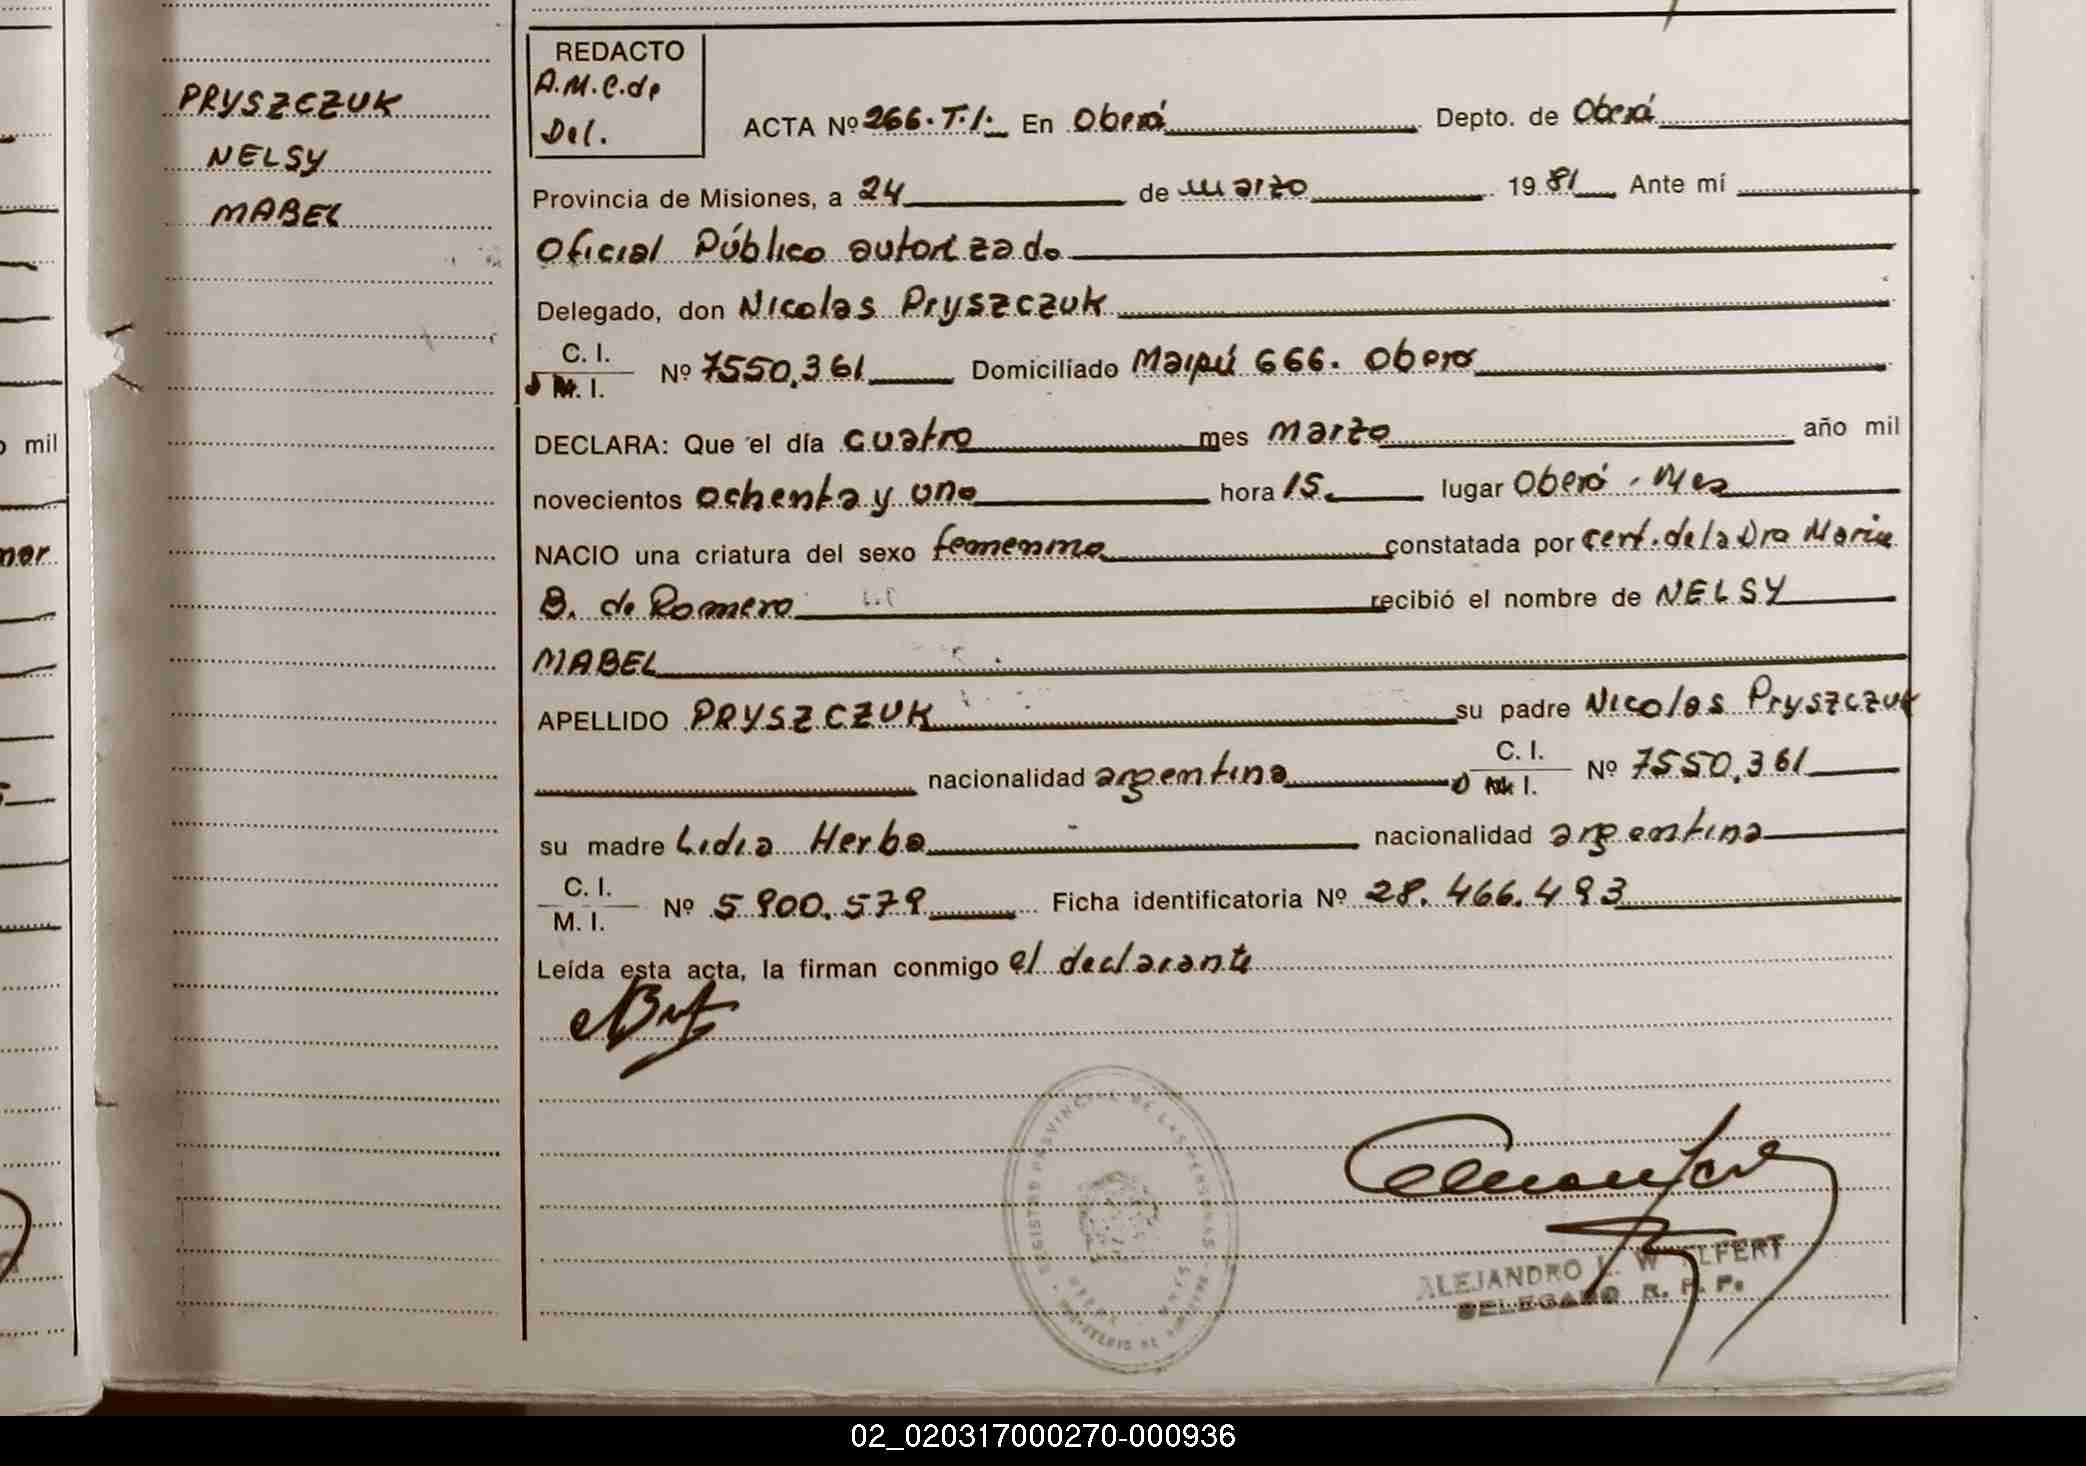 PRYSZCZUK
NELSY
MABEL
REDACTO
A.M.C.de
Del.
ACTA Nº 266.T.I. En Oberá Depto. de Oberá
Provincia de Misiones, a 24 de marzo 1981 Ante mí
Oficial Público autorizado
Delegado, don Nicolas Pryszczuk
C. I.
M. I. Nº 7550.361 Domiciliado Maipú 666. Oberá
DECLARA: Que el día cuatro mes marzo año mil
novecientos ochenta y uno hora 15. lugar Oberá. Mes
NACIO una criatura del sexo femenino constatada por cert. de la Dra Maria
B. de Romero recibió el nombre de NELSY
MABEL
APELLIDO PRYSZCZUK su padre Nicolas Pryszczuk
nacionalidad argentina C. I.
M. I. Nº 7550.361
su madre Lidia Herba nacionalidad argentina
C. I.
M. I. Nº 5.900.579 Ficha identificatoria Nº 28.466.493
Leída esta acta, la firman conmigo el declarante
REGISTRO PROVINCIAL DE LAS PERSONAS
ALEJANDRO L.
DELEGADO R. P. P.
mil
02_020317000270-000936